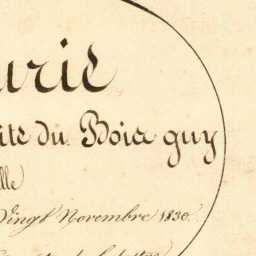 urie
ite du Bois guy
lle
Vingt Novembre 1830.